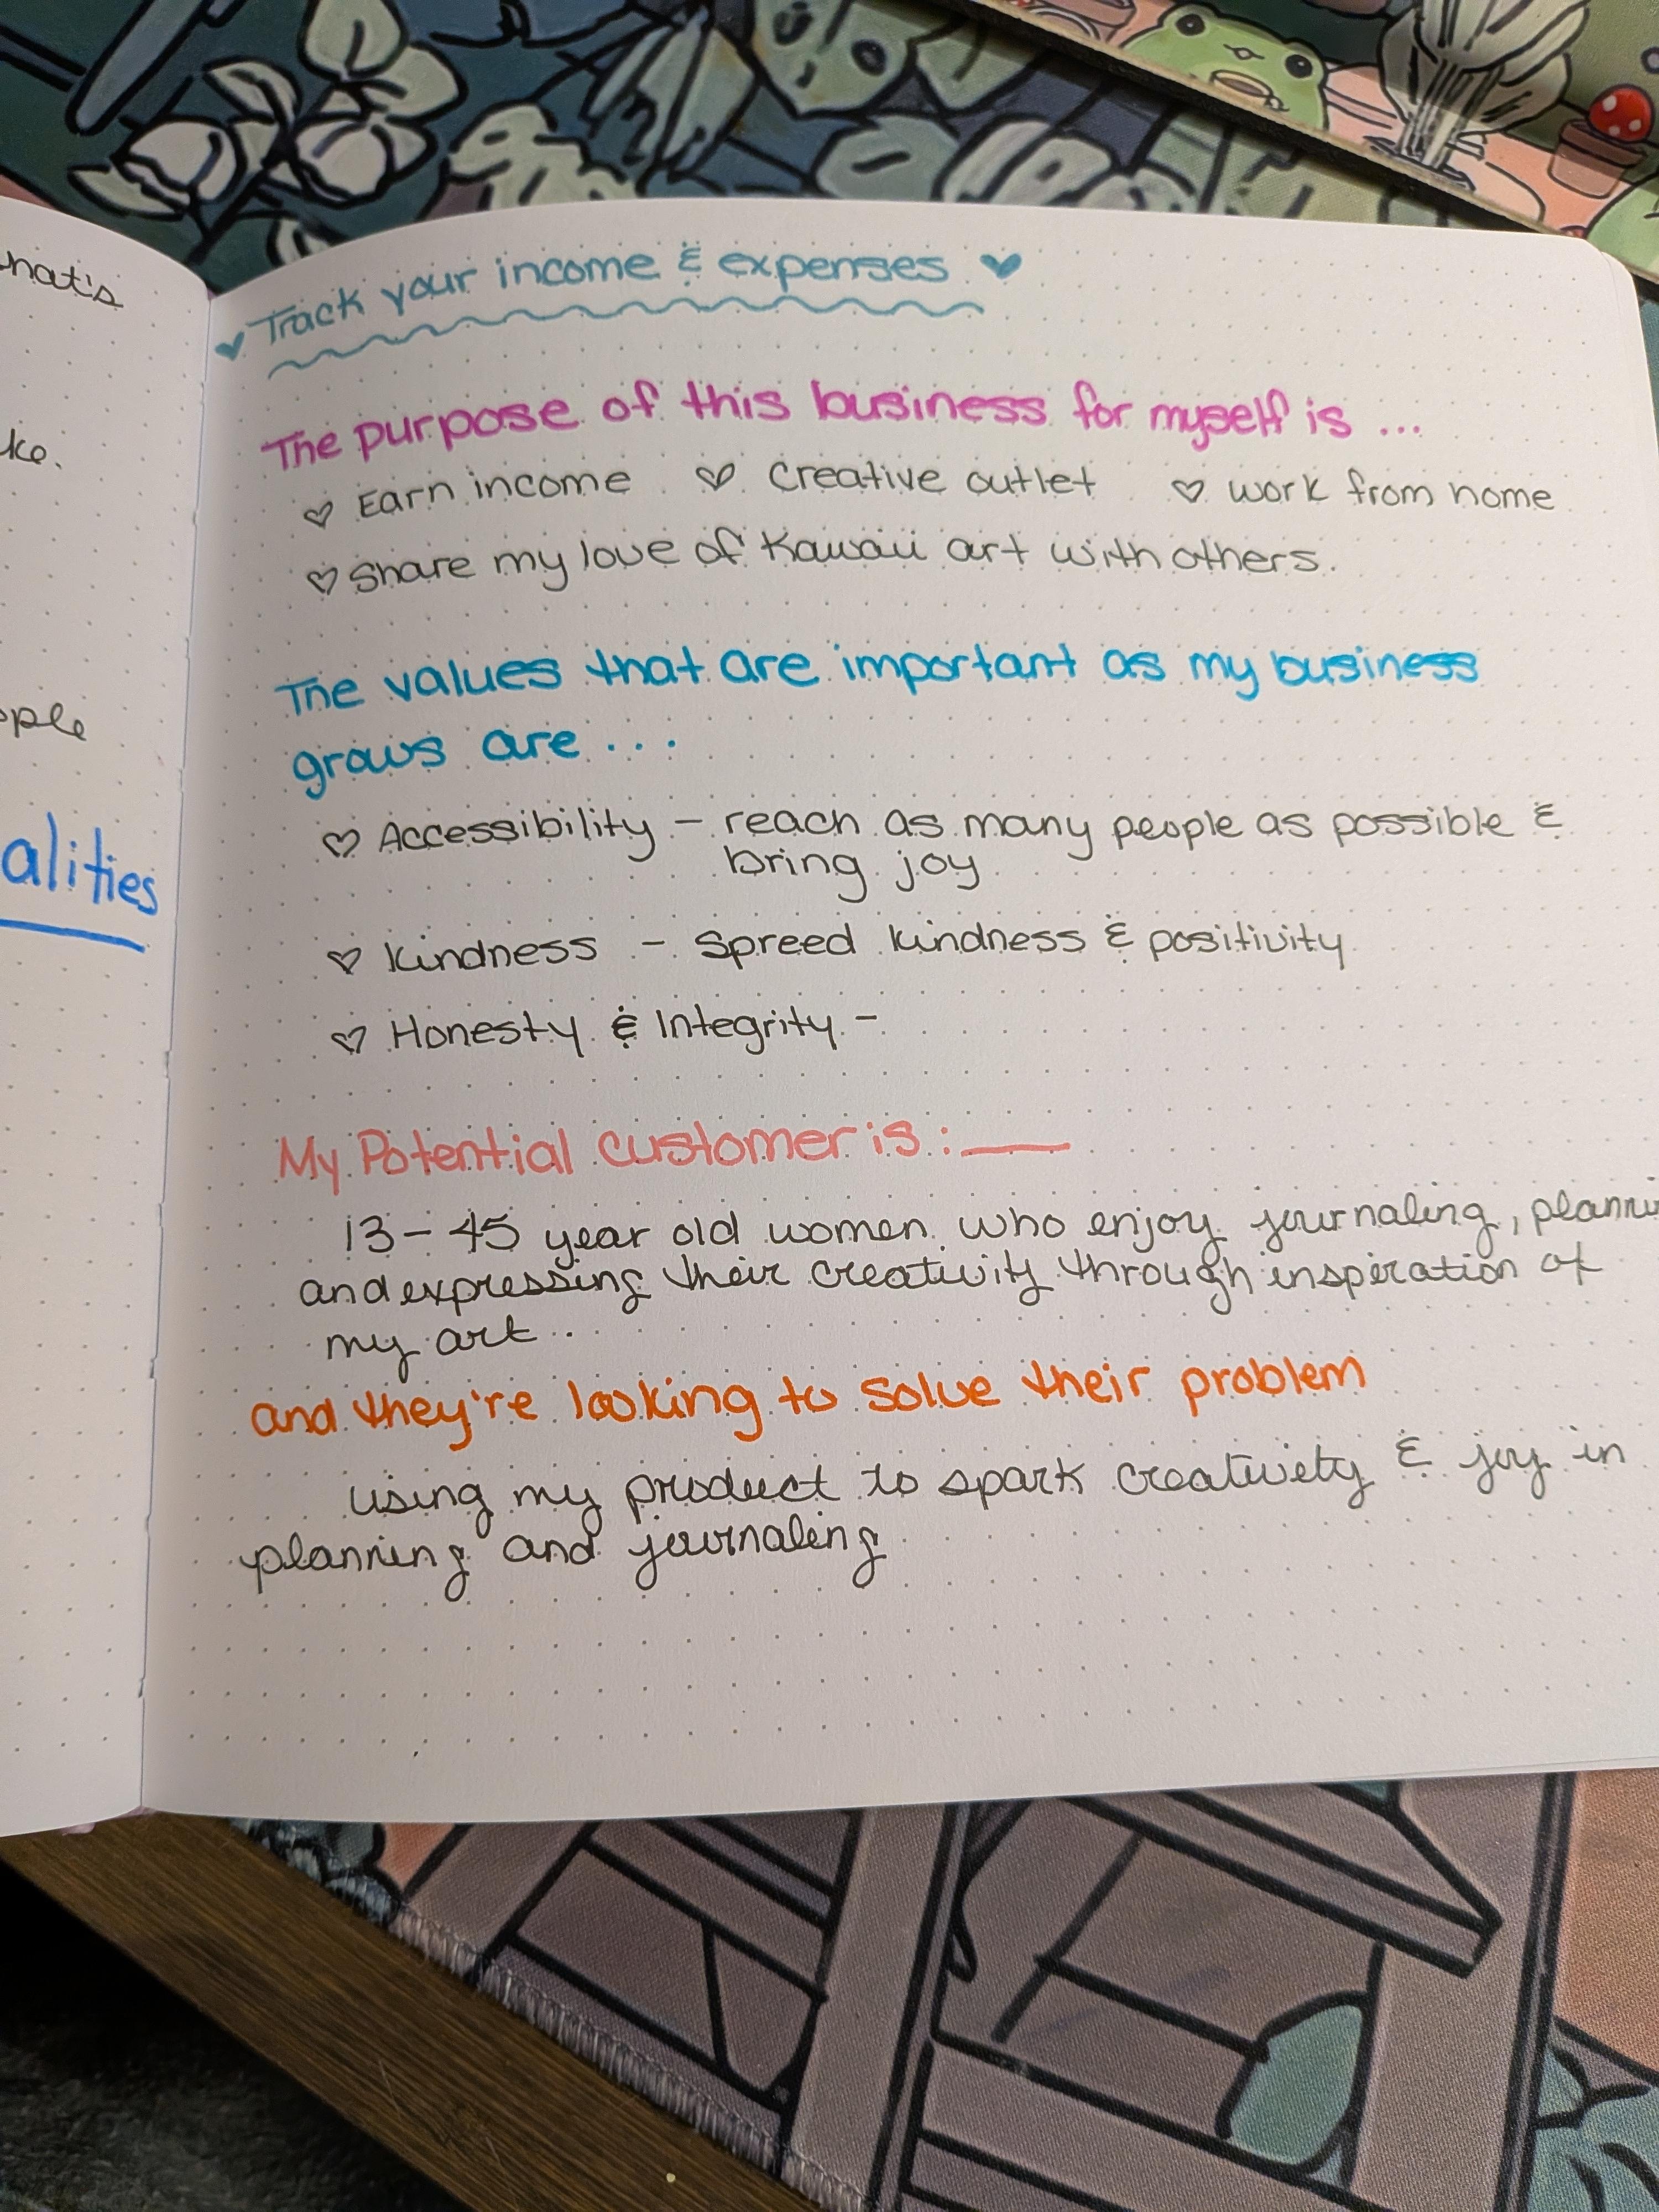 hat's
ke.
ople
alities
Track your income & expenses
The purpose of this business for myself is ...
Earn income Creative outlet work from home
Share my love of Kawaii art with others.
The values that are important as my business
grows are ...
Accessibility - reach as many people as possible &
bring joy
Kindness - Spreed kindness & positivity
Honesty & Integrity -
My Potential customer is : ___
13-45 year old women who enjoy journaling, planni
and expressing their creativity through inspiration of
my art..
and they're looking to solve their problem
using my product to spark creativety & joy in
planning and journaling